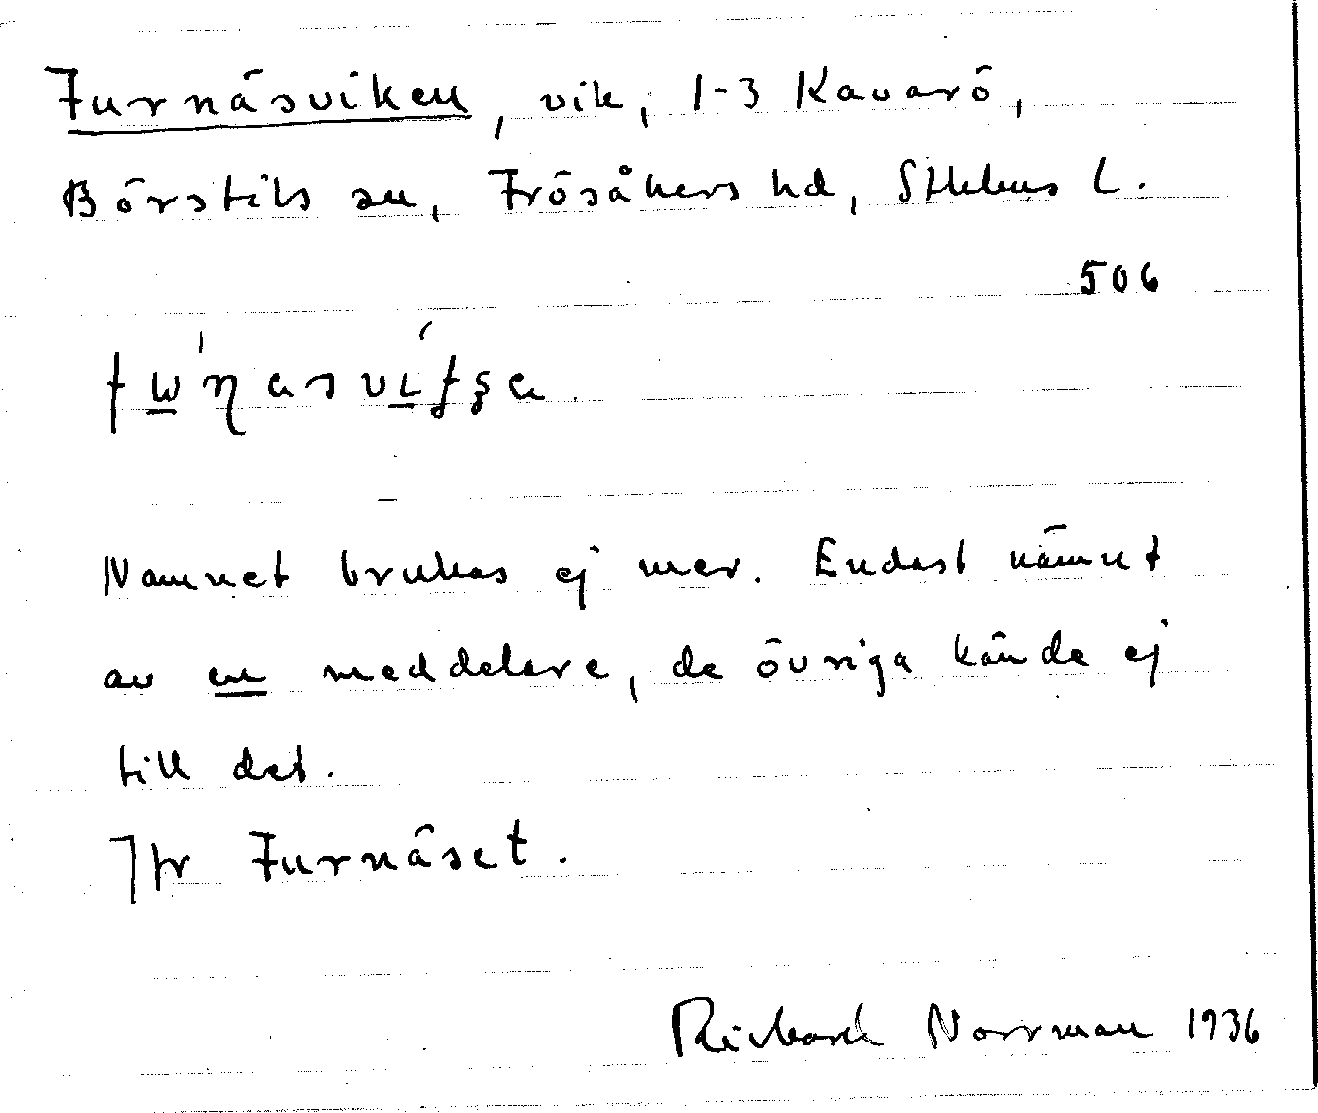 Furnäsviken, vik, 1-3 Kavarö,
Börstils sn, Frösåkers hd, Sthlms L.
506
Namnet brukas ej mer. Endast nämnt
av en meddelare, de övriga kände ej
till det.
Jfr Furnäset.
Richard Norrman 1936